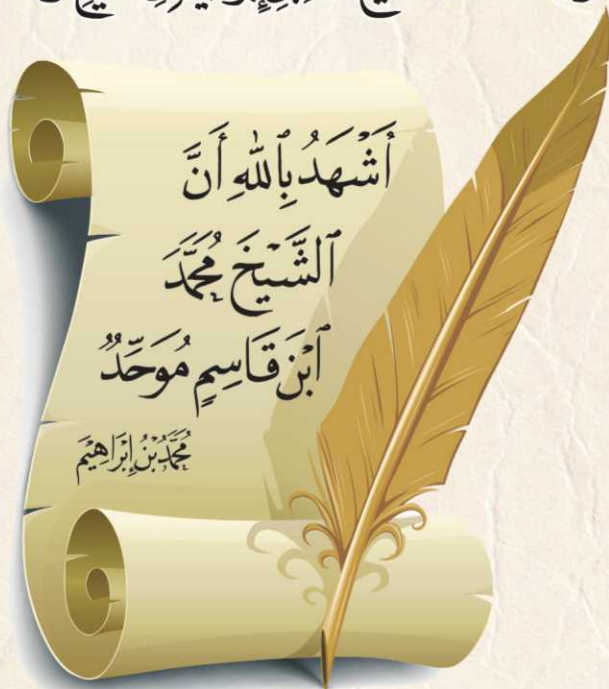 أَشْهَدُ بِٱللَّهِ أَنَّ
ٱلشَّيْخَ مُحَمَّدَ
ٱبْنَ قَاسِمٍ مُوَحِّدٌ
مُحَمَّدُ بْنُ إِبْرَاهِيْمَ